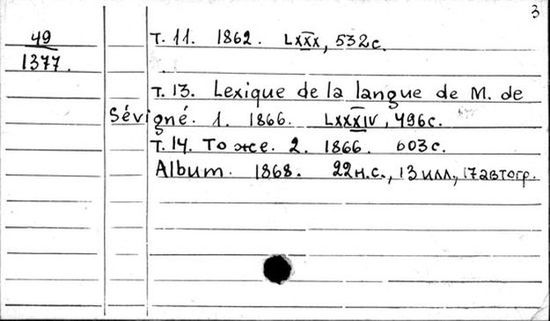 3
49
1377.
Т. 11. 1862. LXXX, 532с.
Т. 13. Lexique de la langue de M. de
Sévigné. 1. 1866. LXXXIV, 496с.
Т. 14. То же. 2. 1866. 603с.
Album. 1868. 22 н.с., 13 илл., 17 автогр.